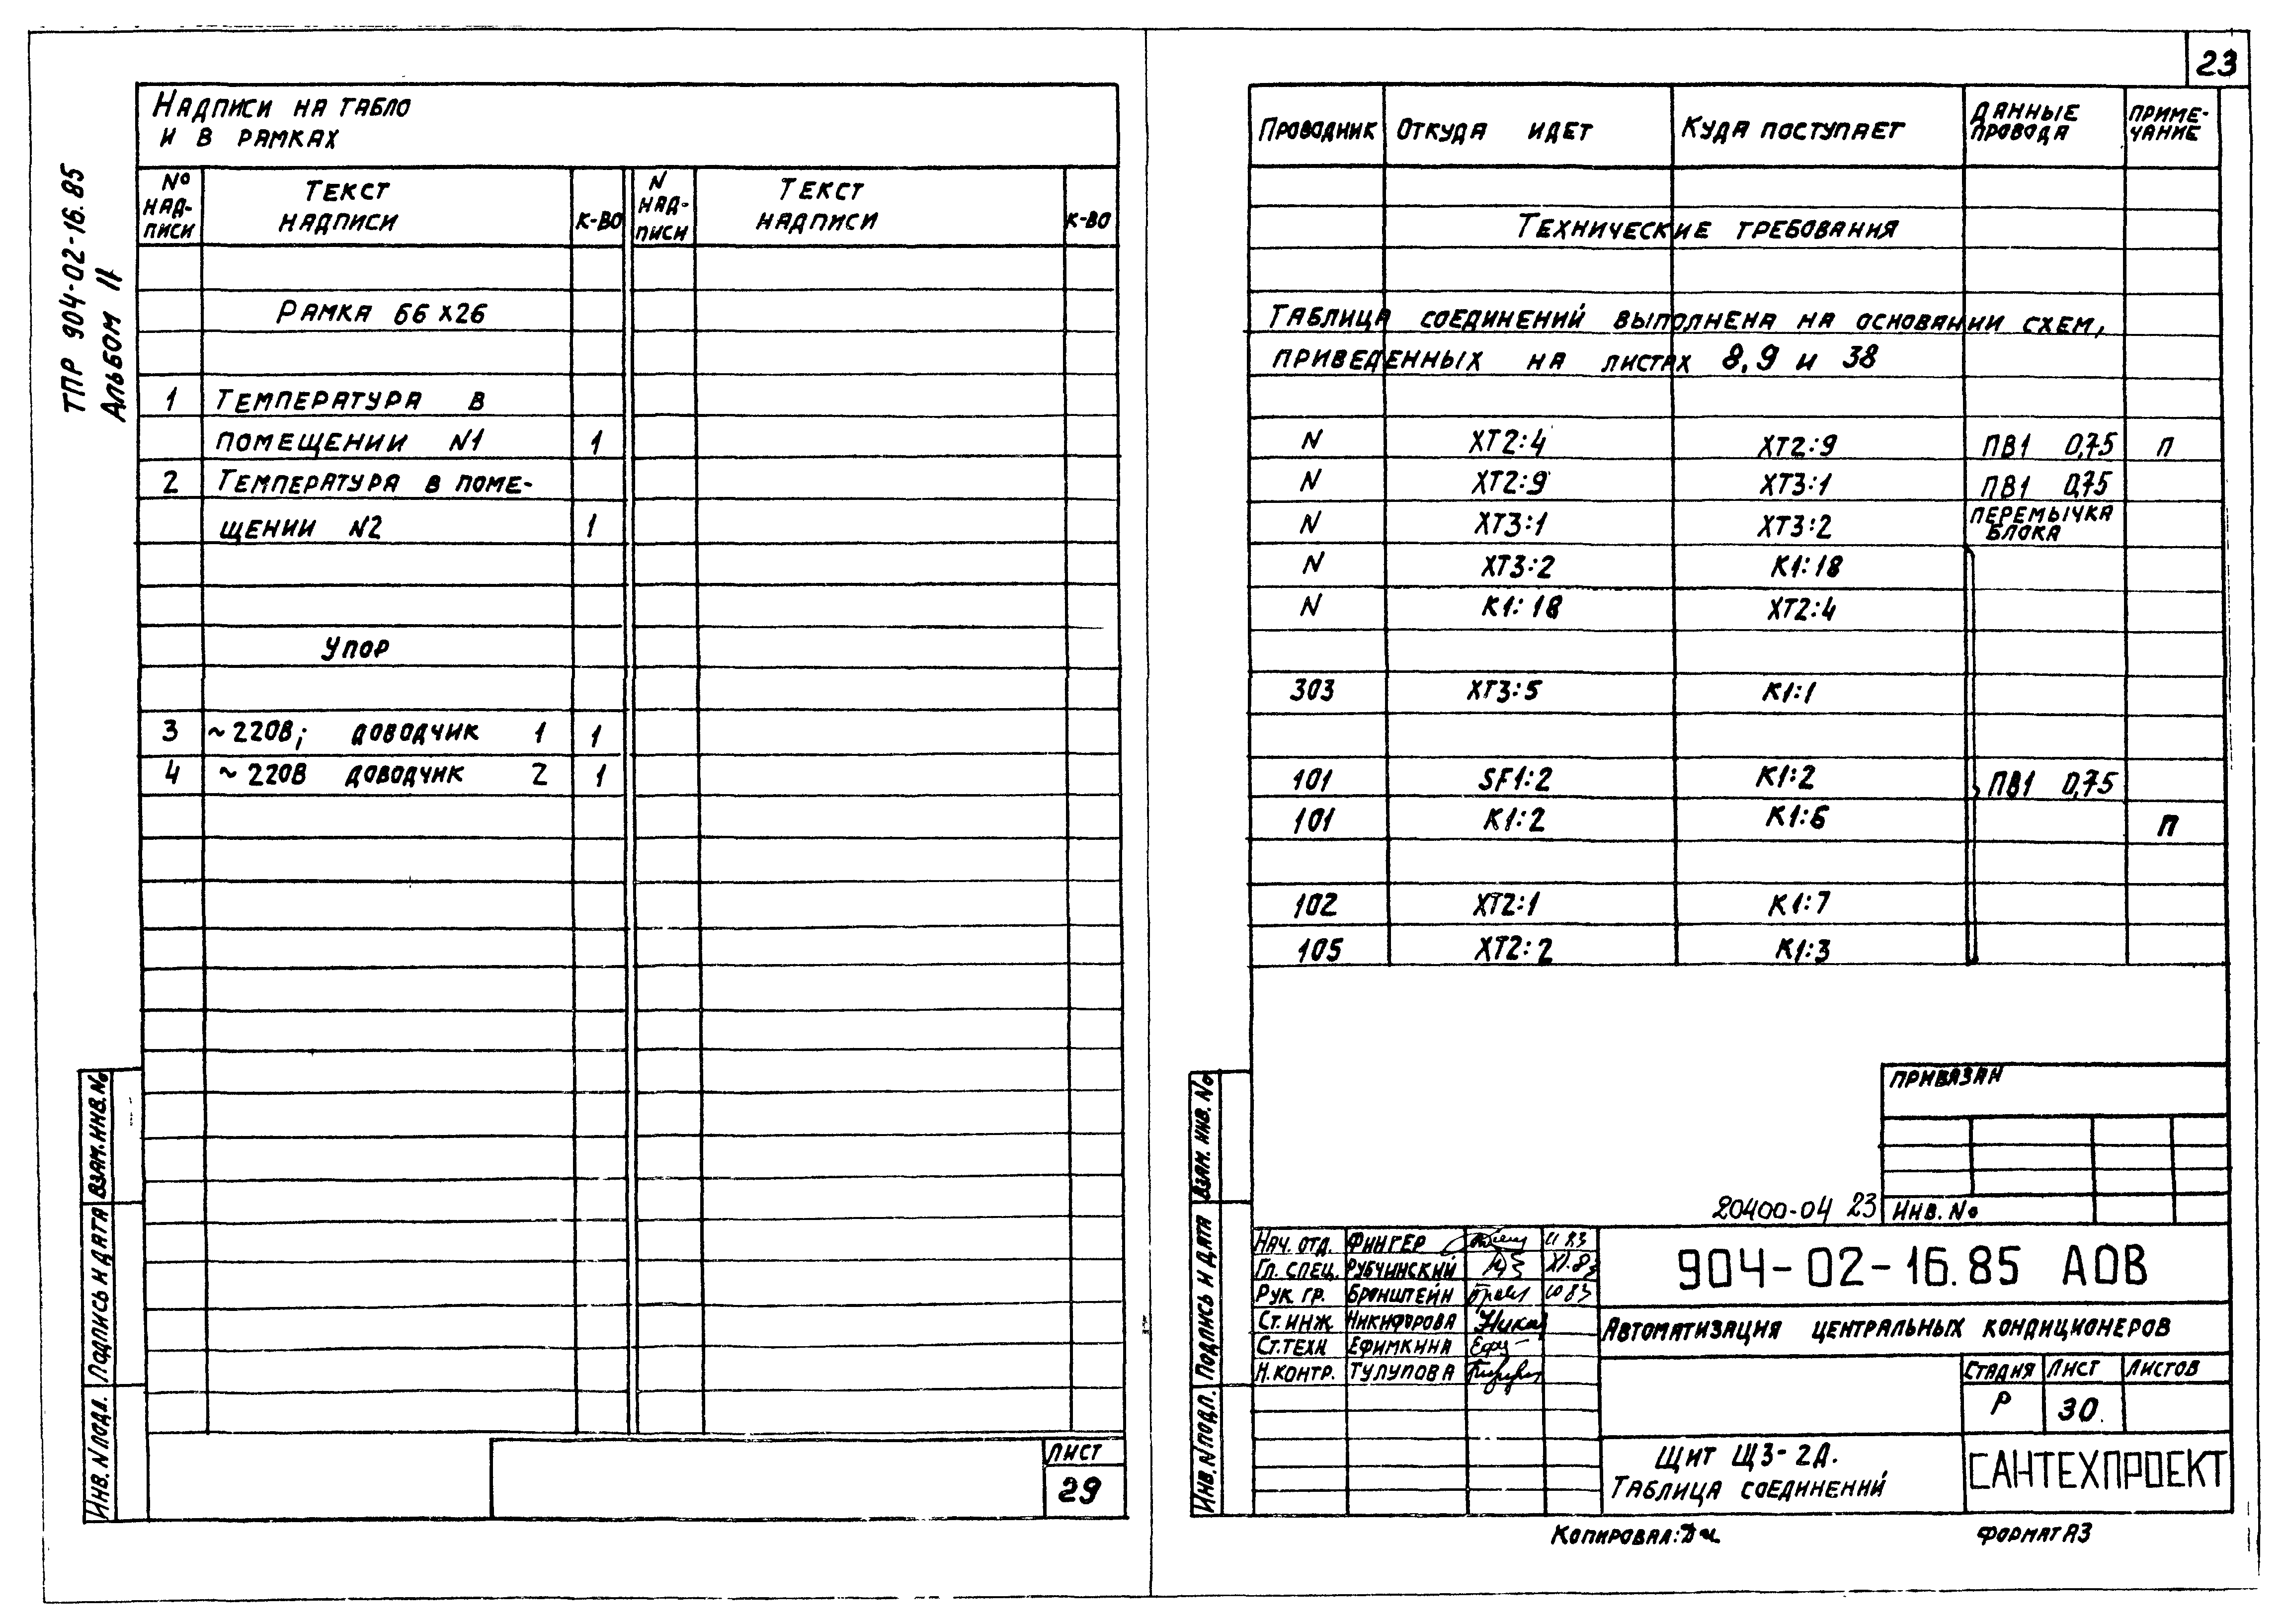 23
ТПР 904-02-16.85
Альбом II
Надписи на табло
и в рамках
№ надписи Текст надписи к-во N надписи Текст надписи к-во
Рамка 66х26
1 Температура в
помещении N1 1
2 Температура в поме-
щении N2 1
Упор
3 ~220В; доводчик 1 1
4 ~220В доводчик 2 1
Взам. инв. №
Подпись и дата
Инв. N подл.
Лист
29
Проводник Откуда идет Куда поступает Данные провода Приме-чание
Технические требования
Таблица соединений выполнена на основании схем,
приведенных на листах 8,9 и 38
N ХТ2:4 ХТ2:9 ПВ1 0,75 П
N ХТ2:9 ХТ3:1 ПВ1 0,75
N ХТ3:1 ХТ3:2 перемычка блока
N ХТ3:2 К1:18
N К1:18 ХТ2:4
303 ХТ3:5 К1:1
101 SF1:2 К1:2 ПВ1 0,75
101 К1:2 К1:6 П
102 ХТ2:1 К1:7
105 ХТ2:2 К1:3
Взам. инв. №
Подпись и дата
Инв. N подл.
Привязан
20400-04 23
Инв. №
Нач. отд. Фингер 11 83
Гл. спец. Рубчинский XI.83
Рук. гр. Бронштейн
Ст. инж. Никифорова
Ст. техн Ефимкина
Н. контр. Тулупова
904-02-16.85 АОВ
Автоматизация центральных кондиционеров
Стадия Лист Листов
Р 30
Щит Щ3-2Д.
Таблица соединений
САНТЕХПРОЕКТ
Копировал:
Формат А3